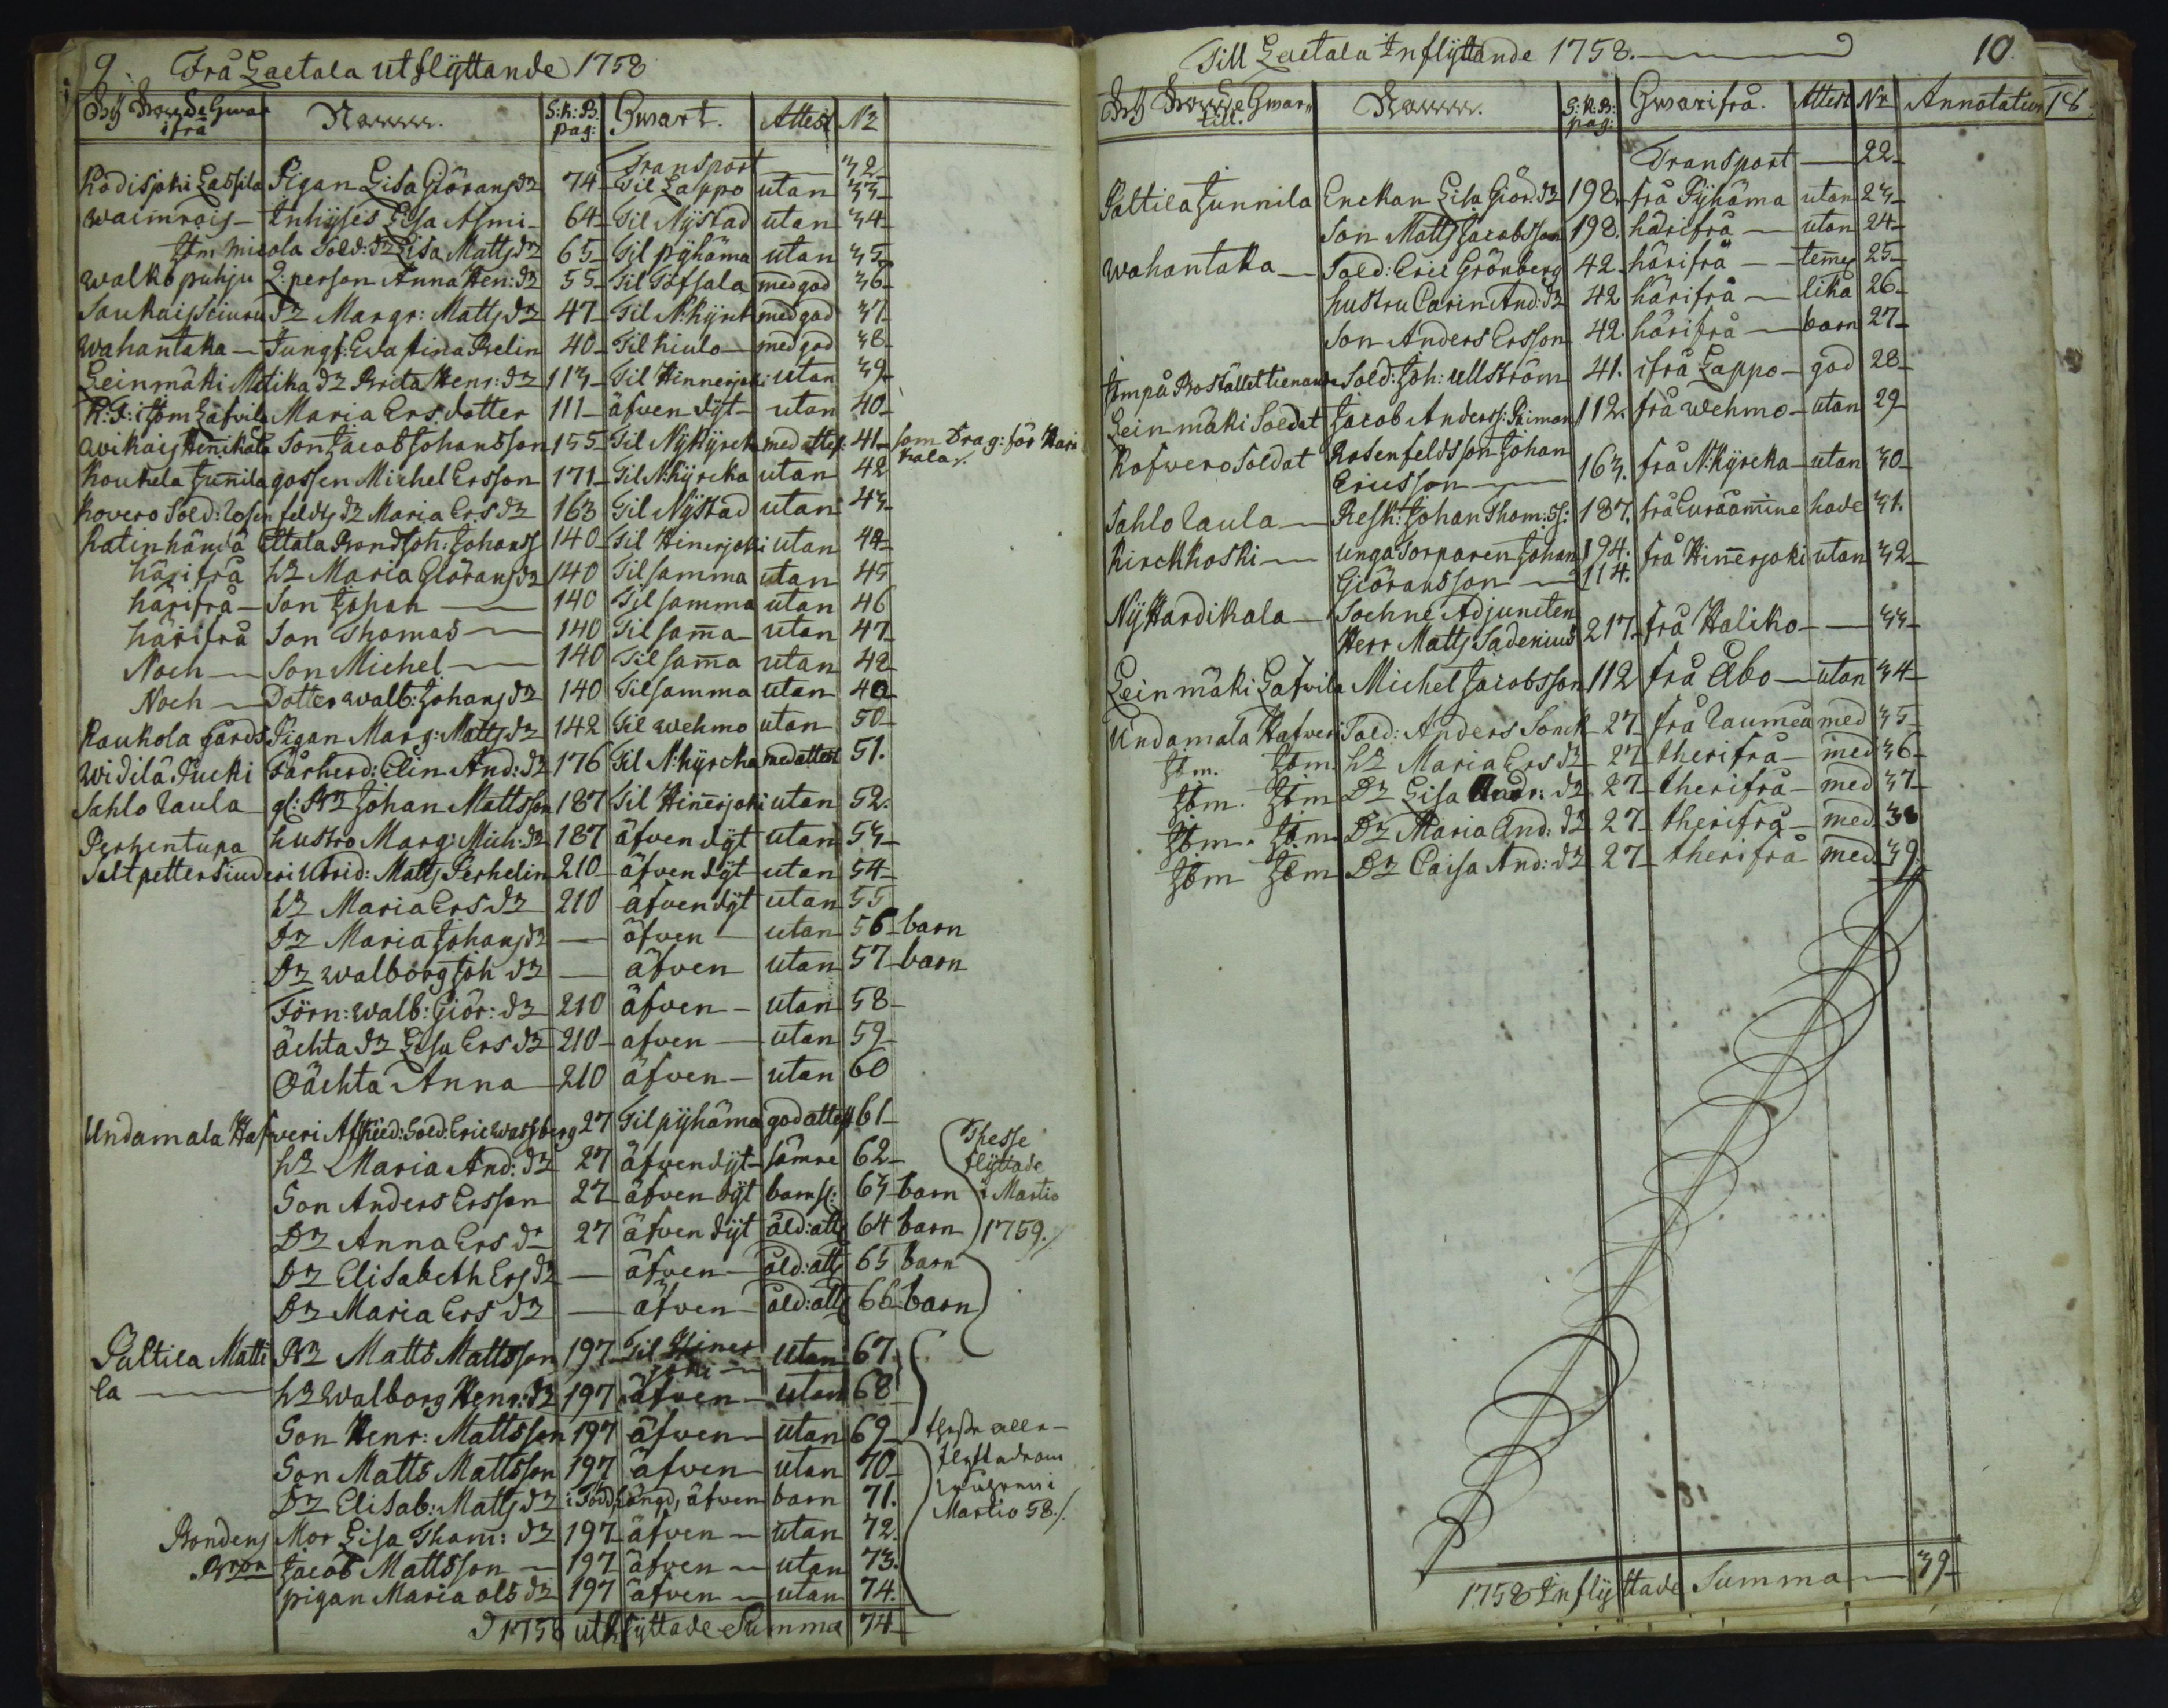 9. Frå Laetala utflÿttande 1758
Bÿ Gwar ifrå Namn. S:k:B. pag: Gwart. Attest N:r
Transport 32
Kodisjoki Lassila Pigan Lisa Giöransd:r 74 Til Lappo utan 33
waimrois Inhÿses Lisa Asmi 64 Til Nÿstad utan 34
Ibm Micola Sold: d:r Lisa Matts d:r 65 Til pÿhäma utan 35
walko puhju Q: person Anna Hen: d:r 55 Til Töfsala med god 36
Saukais d:r Margr: Matts d:r 47 Til N:kÿrk med god 37
wahantaka Jungf: Eva stina Belin 40 Til kiulo med god 38
Leinmäki Mattika d:r Brita Henr: d:r 113 Til Hinnerjoki utan 39
Maria Ers dotter 111 äfven dÿt utan 40
Avikais Hennikala Son Jacob Johansson 155 Til Nÿkÿrck med attest 41 som Drag: för Kari kala
Koukela Junnila gossen Michel Ersson 171 Til N:kÿrcka utan 42
Kovero Sold: Rosenfeldts d:r Maria Ers d:r 163 Til Nÿstad utan 43
Katinhändä Ettala Bond Joh: Johanss 140 Til Hinerjoki utan 44
härifrå h:r Maria Giörans d:r 140 Til samma utan 45
härifrå Son Johan 140 Til samma utan 46
härifrå Son Thomas 140 Til sam̄a utan 47
Noch Son Michel 140 Til sam̄a utan 48
Noch Dotter walb: Johans d:r 140 Til samma utan 49
Kaukola gårds Pigan Marg: Matts d:r 142 Til wehmo utan 50
widilä Pucki Fårherd: Elin And: d:r 176 Til N:kÿrcka med attest 51.
Sahlo Raula gl: B:r Johan Mattsson 187 Til Hinerjoki utan 52.
Perhentupa hustro Marg: Mich: d:r 187 äfven dÿt utan 53
Saltpettersiuderi Utrid: Matts Perhelin 210 äfven dÿt utan 54
h:r Maria Ers d:r 210 äfven dÿt utan 55
D:r Maria Johans d:r — äfven utan 56 barn
D:r walborg Joh d:r — äfven utan 57 barn
Förn: walb: Giör: d:r 210 äfven utan 58
ächta d:r Lisa Ers d:r 210 äfven utan 59
Oächta Anna 210 äfven utan 60
Undamala Hafveri Afskied: Sold: Eric wassberg 27 Til pÿhäma god attest 61
h:r Maria And: d:r 27 äfven dÿt sämre 62
Son Anders Ersson 27 äfven dÿt barnsl: 63 barn
D:r Anna Ers d:r 27 äfven dÿt åld: att 64 barn
Thesse flÿttade i Martio 1759.
D:r Elisabeth Ers d:r — äfven åld: att 65 barn
D:r Maria Ers d:r — äfven åld: att 66 barn
Paltila Matti la B:r Matts Mattsson 197 Til Hiner joki utan 67.
h:r Walborg Henr: d:r 197 äfven utan 68
Son Henr: Mattsson 197 äfven utan 69
Son Matts Mattsson 197 äfven utan 70
D:r Elisab: Matts d:r i Födslängd, äfven barn 71.
these alle flyttade om i Martio 58.
Bondens Mor Lisa Thom: d:r 197 äfven utan 72.
Bror Jacob Mattsson 197 äfven utan 73.
pigan Maria ols d:r 197 äfven utan 74.
1758 utflÿttade Summa 74
Till Laetala Inflÿttande 1758. 10.
Bÿ Gwar till. Namn. S:k:B: pag: Gwarifrå. Attest N:r Annotation 18.
Transport 22
Paltila Junnila Enckan Lisa Giör: d:r 198 frå Pÿhäma utan 23
Son Matts Jacobsson 198. härifrå utan 24
wahantaka Sold: Eric Grönberg 42 härifrå 25
hustru Carin And: d:r 42 härifrå lika 26
Son Anders Ersson 42. härifrå barn 27
Ibm på Boställettienande Sold: Joh: Ullström 41. ifrå Lappo god 28
Leinmäki Soldat Jacob Anderss: Reiman 112. frå wehmo utan 29
Kofwero Soldat Rosenfelds son Johan Ericsson 163. frå N:kÿrcka utan 30
Sahlo Raula Resk: Johan Thom: ss: 187. frå Euraåminne hade 31.
Kirckkoski unga Torparen Johan Giöransson 194. 114. frå Hinnerjoki utan 32
Nÿ Hardikala Sochne Adjuncten Herr Matts Sadenius 217. frå Haliko 33
Leinmäki Lafvila Michel Jacobsson 112 frå Åbo utan 34
Undamala Hafveri Sold: Anders Sonck 27 frå Raumea med 35
Ibm. Ibm. h:r Maria Ers d:r 27 therifrå med 36
Ibm. Ibm D:r Lisa Andr: d:r 27 therifrå med 37
Ibm. Ibm. D:r Maria And: d:r 27 therifrå med 38
Ibm Ibm D:r Caisa And: d:r 27 therifrå med 39.
1758 Inflÿttade Summa 39